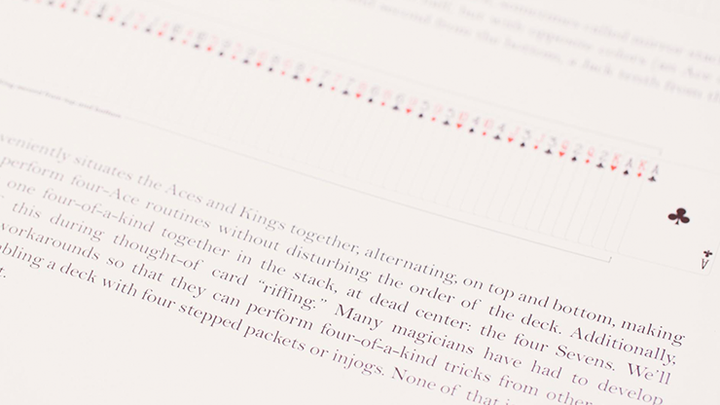 sometimes called mirror stack
but with opposite colors (an Ace
second from the bottom, a Jack tenth from
veniently situates the Aces and Kings together, alternating, on top and bottom, making
perform four-Ace routines without disturbing the order of the deck. Additionally,
one four-of-a-kind together in the stack, at dead center: the four Sevens. We'll
this during thought-of card "riffing." Many magicians have had to develop
workarounds so that they can perform four-of-a-kind tricks from other
bling a deck with four stepped packets or injogs. None of that
t.